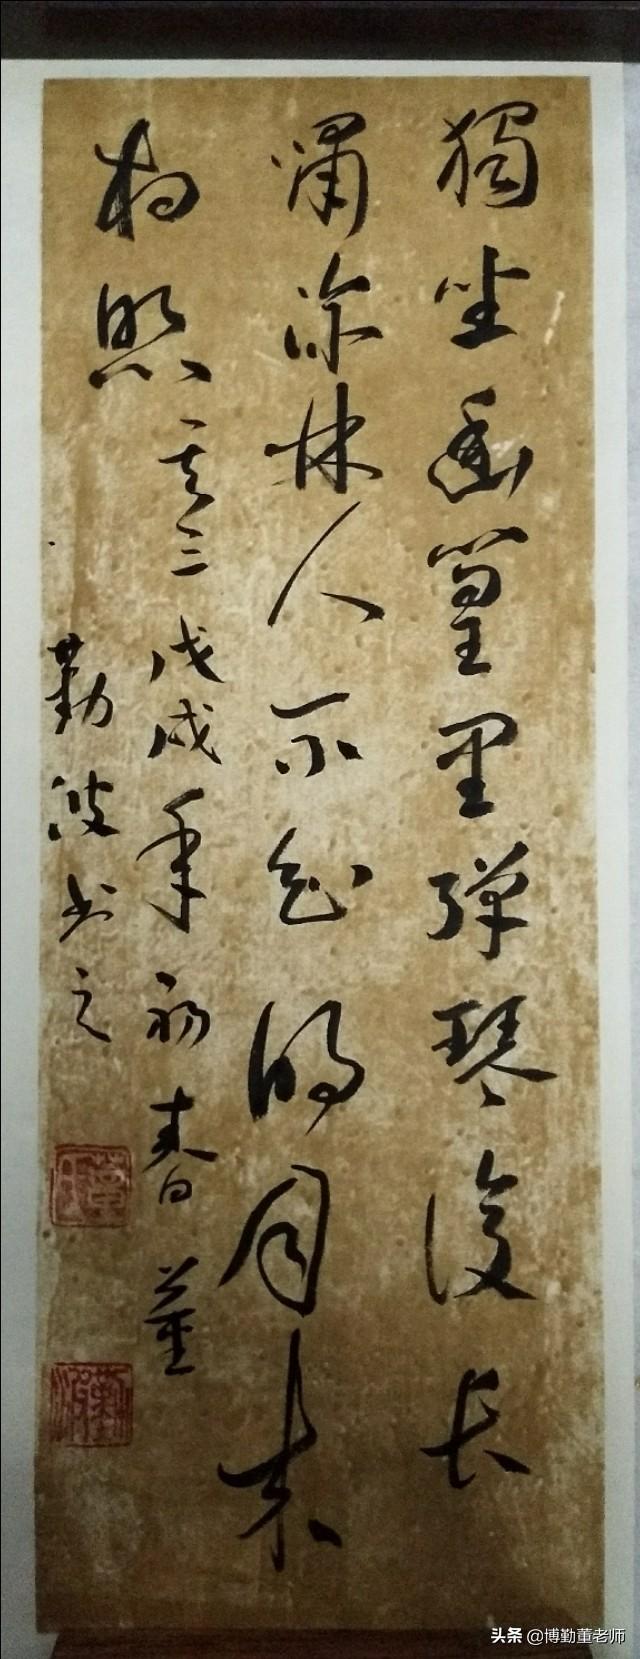 獨坐幽篁里彈琴復长
嘯深林人不知明月来
相照
其二戊戌年初春董
勤波书之
董
勤波
头条 @博勤董老师